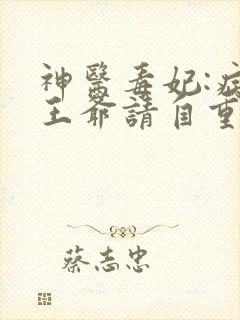 神醫毒妃:病
王爺請自重
蔡志忠